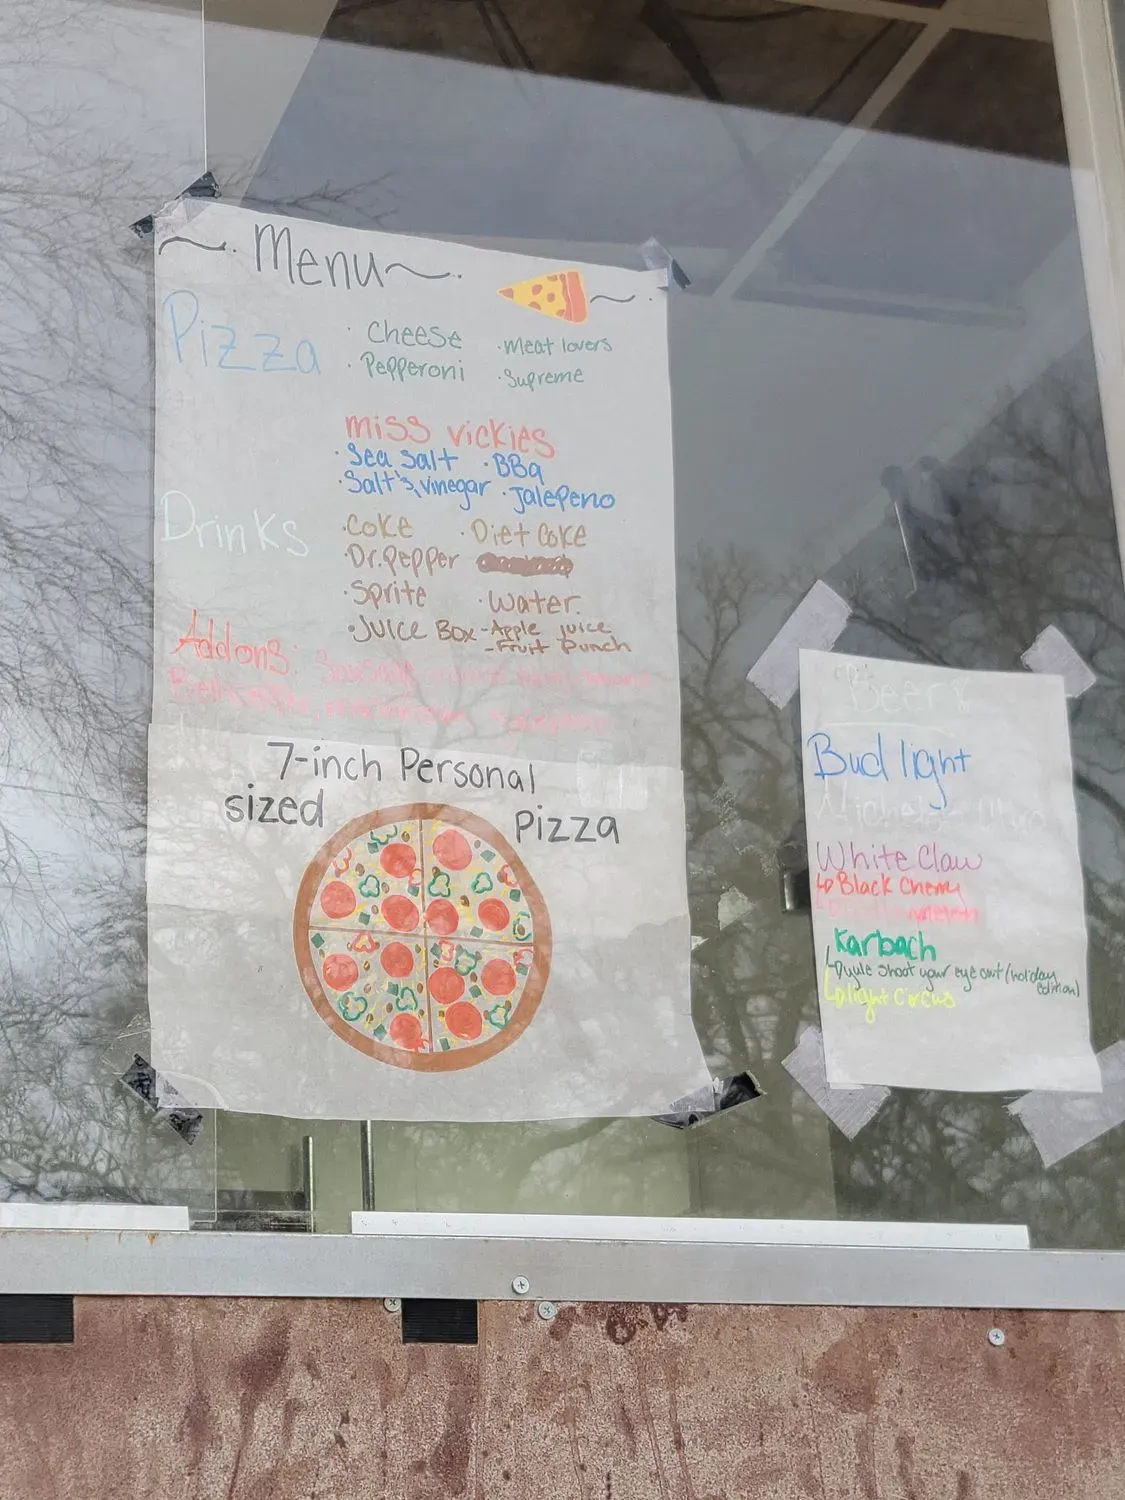 Menu
Pizza
· Cheese · Meat lovers
· Pepperoni · Supreme
miss vickies
· Sea salt · BBQ
· Salt & vinegar · Jalepeno
Drinks
· Coke · Diet Coke
· Dr. Pepper
· Sprite · Water
· Juice Box - Apple juice
- Fruit Punch
Addons:
7-inch Personal
sized Pizza
Beer
Bud light
White Claw
Black Cherry
Karbach
yule shoot your eye out (holiday
edition)
light Circus